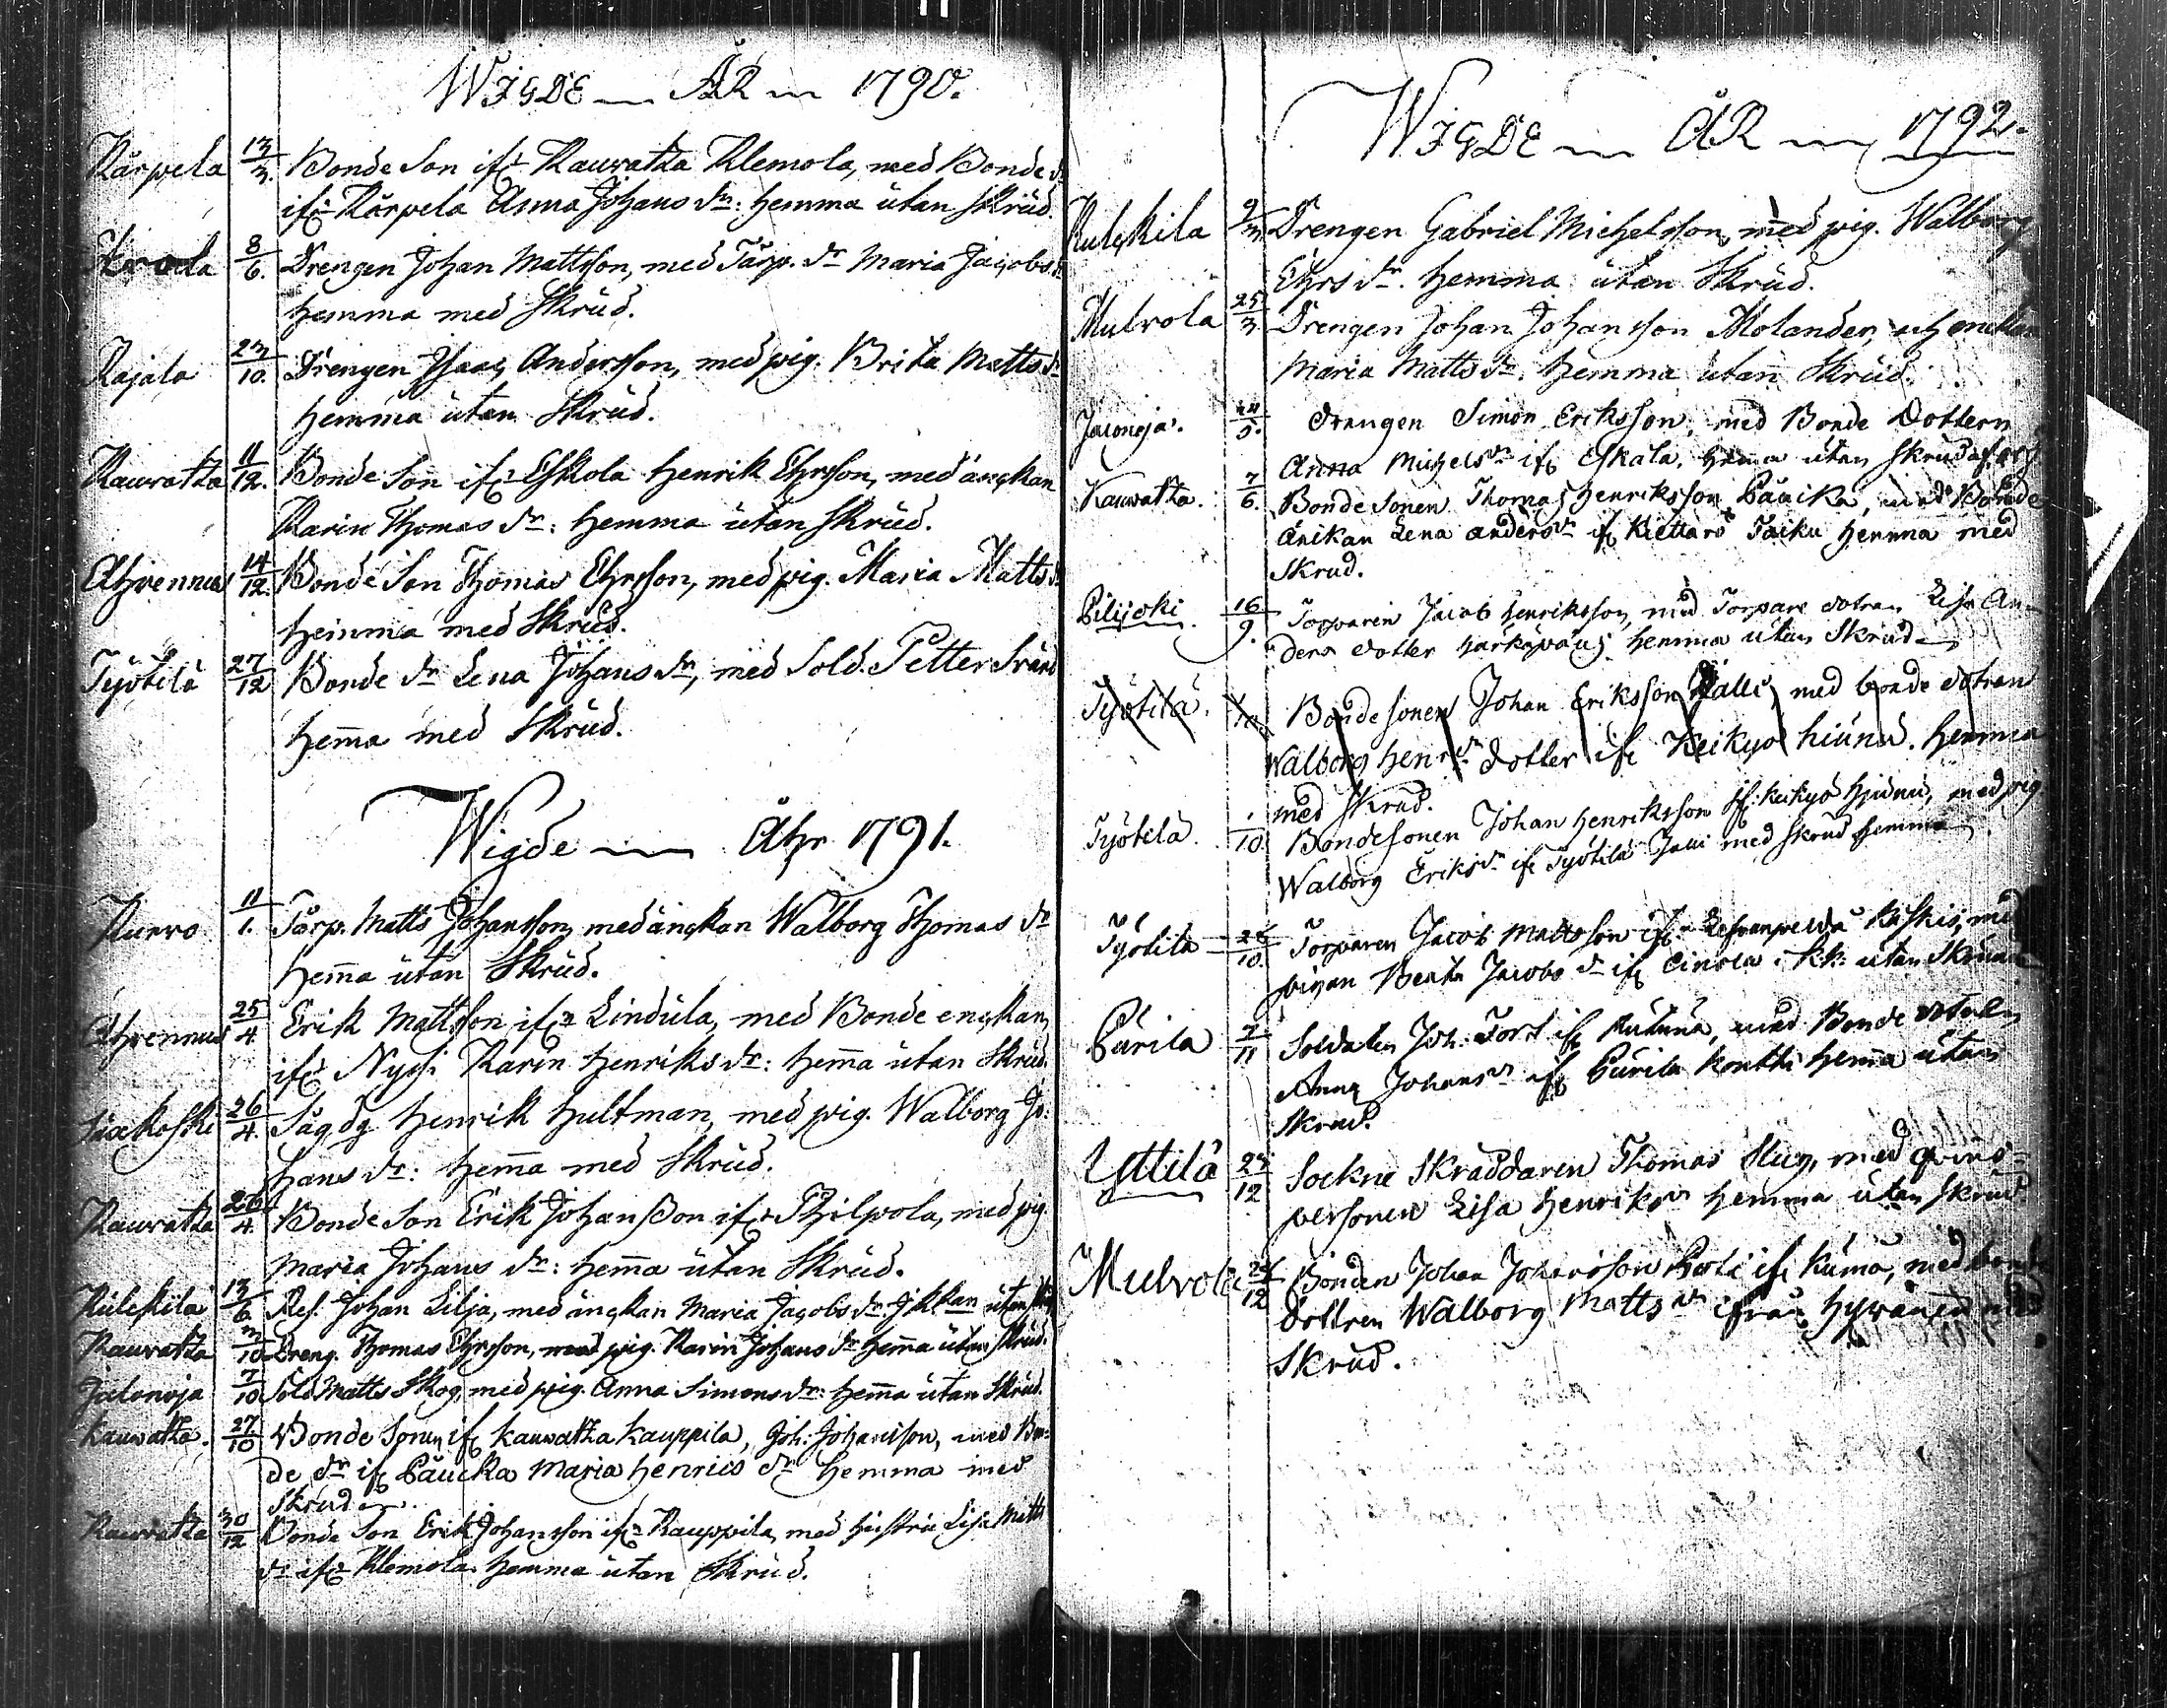 WIGDE ÅR 1790.
Kårpela 13/3. Bonde Son ifr Kauvatza Klemola, med Bonde dr
ifr Kårpela Anna Johans dr: hemma utan Skrud.
8/6. Drengen Johan Mattsson, med Tårp. dr Maria Jacobs dr
hemma med Skrud.
Rajala 23/10. Drengen Isaac Andersson, med pig. Brita Matts dr
hemma utan Skrud.
Kauvatza 11/12. Bonde Son ifr Eskola Henrik Ehrsson, med änckan
Karin Thomas dr: hemma utan Skrud.
Ahvennus 14/12. Bonde Son Thomas Ehrsson, med pig. Maria Matts dr
hemma med Skrud.
Työtilä 27/12 Bonde dr Lena Johans dr, med Sold. Petter Svärd
hemma med Skrud.
Wigde Åhr 1791.
Kurvo 11/1. Tårp. Matts Johansson, med änckan Walborg Thomas dr
hemma utan Skrud.
Ahvennus 25/4 Erik Mattsson ifr Lindula, med Bonde enckan
ifr Nysi Karin Henriks dr: hemma utan Skrud.
26/4. Såg dg Henrik Hultman, med pig. Walborg Jo-
hans dr: hemma med Skrud.
Kauvatza 26/4. Bonde Son Erik Johansson ifr Philpola, med pig
Maria Johans dr: hemma utan Skrud.
Kuleskila 13/6. Ref. Johan Lilja, med änckan Maria Jacobs dr utan
Kauvatza 3/10 Dreng. Thomas Ehrsson, med pig. Karin Johans dr hemma utan Skrud.
Jalonoja 7/10 Sold Matts Skog, med pig. Anna Simons dr: hemma utan Skrud.
Kauvatza. 27/10 Bonde Sonen ifr Kauvatza Kauppila, Joh: Johansson, med Bon-
de dr ifr Päucka Maria Henrics dr hemma med
Skrud.
Kauvatza 30/12 Bonde Son Erik Johansson ifr Kauppila, med hustru Lisa Matts
dr ifr Klemola hemma utan Skrud.
WIGDE ÅR 1792.
Kulckila 9/3 Drengen Gabriel Michelsson, med pig. Walborg
Ehrs dr. hemma utan Skrud.
Mulvola 25/3. Drengen Johan Johansson Molander, och enckan
Maria Matts dr. hemma utan Skrud.
Jalonoja. /5. Drengen Simon Eriksson, med Bonde Dottern
Anna Michels dr ifr Eskala. hemma utan Skrud
Kauvatza. 7/6. Bonde Sonen Thomas Henriksson Päuika, med Bonde
Änikan Lena Anders dr ifr Kiettarö Taiku hemma med
Skrud.
Pilijoki. 16/9. Torparen Jacob Henriksson, med Torpare dotren Lisa An-
ders dotter hemma utan Skrud
Työtilä. 1/10. Bonde Sonen Johan Eriksson Jalli, med bonde dotren
Walborg Henr dr dotter ifr Keikyö hiunu. hemma
med Skrud.
Työtilä. 1/10. Bonde Sonen Johan Henriksson ifr: Keikyö hiunu, med pig
Walborg Eriks dr ifr Työtilä Jalli med Skrud hemma
Työtilä /10. Torparen Jacob Mattsson ifr Kiskis, med
pigan Beata Jacobs dr ifr Einola i Kk: utan Skrud
Pürila 7/11 Soldaten Joh: Fort ifr med Bonde dotren
Anna Johans dr ifr Pürila Kontti hemma utan
Skrud.
Yttilä 25/12 Sockne Skräddaren Thomas med qvins-
personen Lisa Henriks dr hemma utan Skrud
Mulvola /12 Bonden Johan Johansson ifr Kumo, med bonde
dottren Walborg Matts dr ifrån Hyvänen med
Skrud.